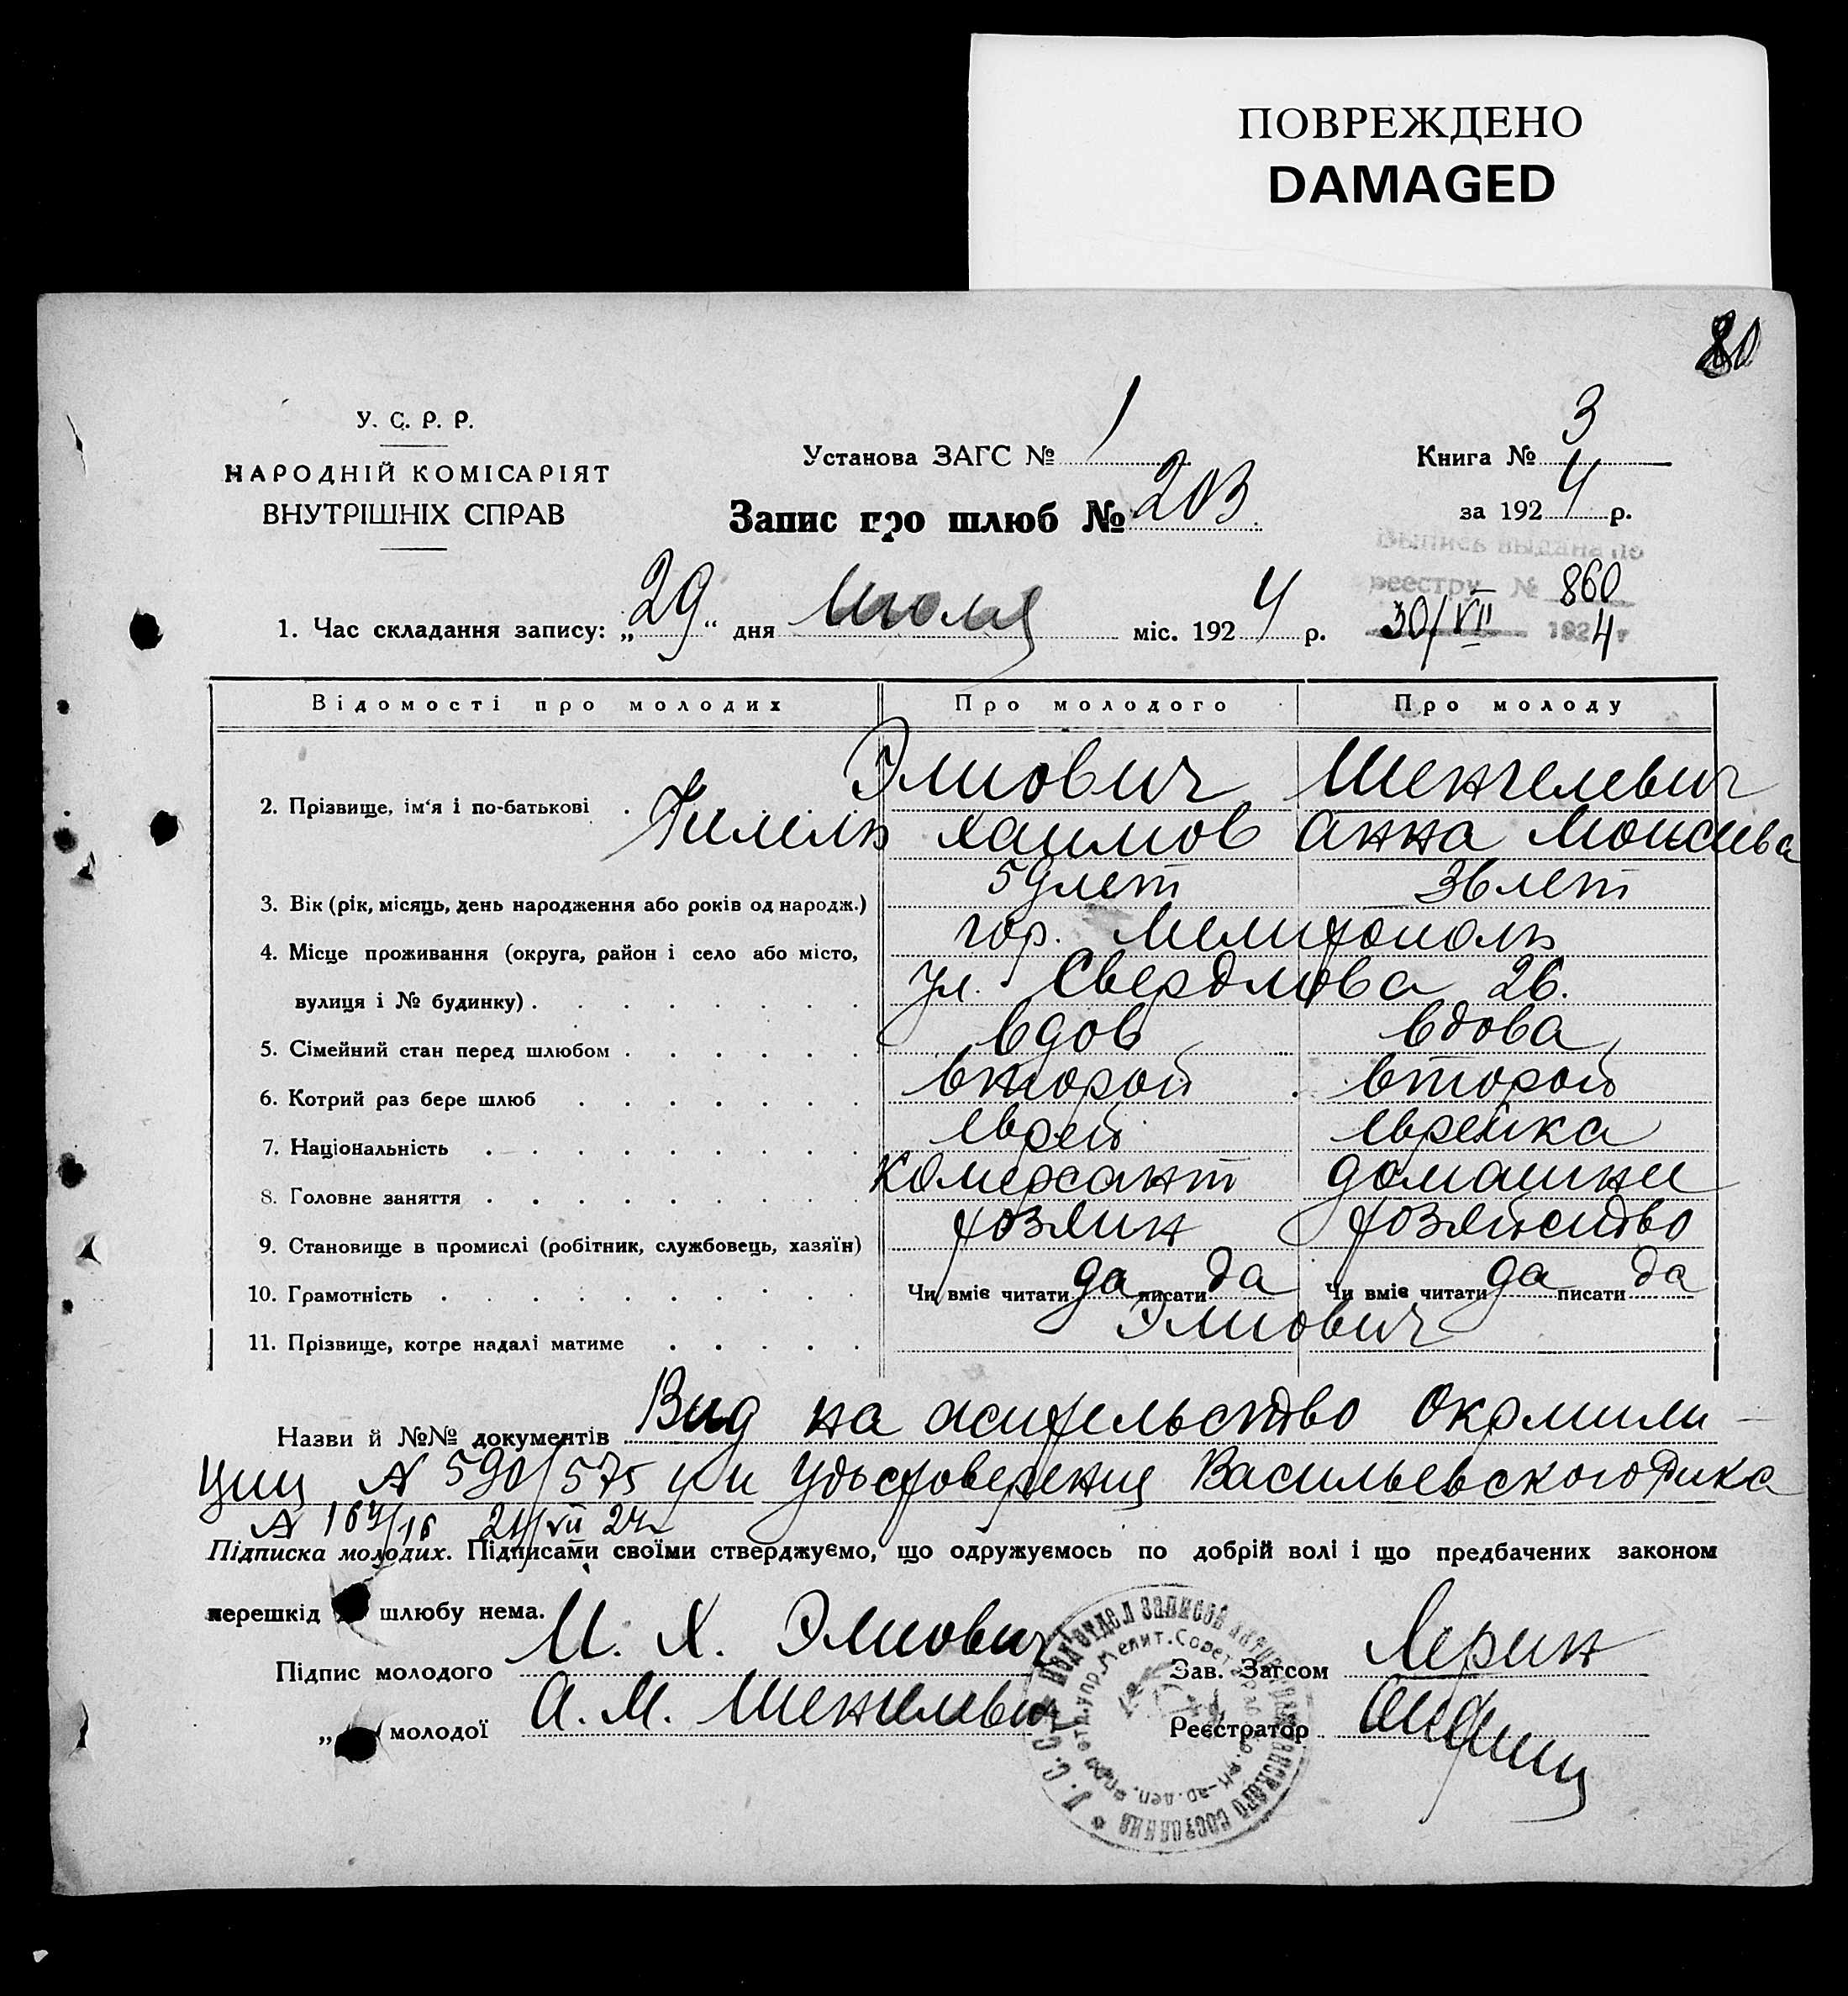 ПОВРЕЖДЕНО
DAMAGED
80
У. С. Р. Р.
НАРОДНІЙ КОМІСАРІЯТ
ВНУТРІШНІХ СПРАВ
Установа ЗАГС № 1
Книга № 3
за 1924 р.
Запис про шлюб № 203
Выпись выдана по
реестру № 860
30/VII 1924 г
1. Час складання запису: „29“ дня Июля міс. 1924 р.
Відомості про молодих Про молодого Про молоду
2. Прізвище, ім'я і по-батькові Элиович
Хаимов Анна Моисеева
3. Вік (рік, місяць, день народження або років од народж.) 59 лет 36 лет
4. Місце проживання (округа, район і село або місто, гор. Мелитополь
вулиця і № будинку) ул. Свердлова 26.
5. Сімейний стан перед шлюбом вдов вдова
6. Котрий раз бере шлюб второй второй
7. Національність еврей еврейка
8. Головне заняття комерсант домашнее
9. Становище в промислі (робітник, службовець, хазяїн) хозяин хозяйство
10. Грамотність Чи вміє читати да писати да Чи вміє читати да писати да
11. Прізвище, котре надалі матиме Элиович
Назви й №№ документів Вид на жительство Окрмили-
ции № 590/575 и удостоверения Васильевского
№ 164/16 21/VII 24
Підписка молодих. Підписами своїми стверджуємо, що одружуємось по добрій волі і що предбачених законом
перешкід шлюбу нема.
Підпис молодого И. Х. Элиович
Зав. Загсом Лерин
„ молодої А. М.
Реєстратор
У.С.С.Р. Под'отдел записей актов гражданского состояния